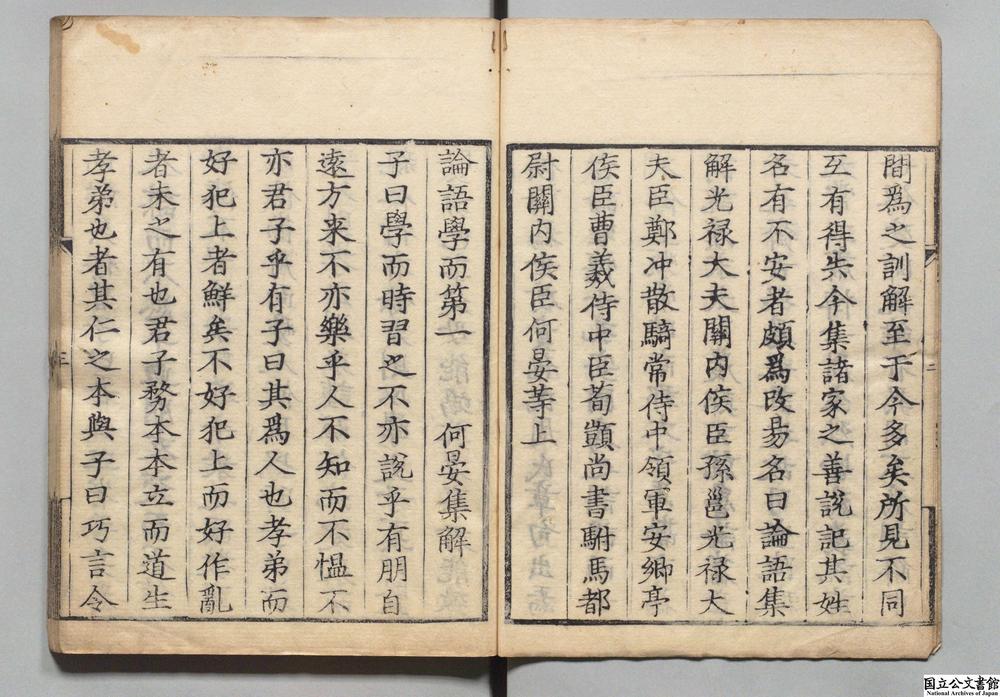 間爲之訓解至于今多矣所見不同
互有得失今集諸家之善說記其姓
名有不安者頗爲改易名曰論語集
解光禄大夫關内侯臣孫邕光禄大
夫臣鄭冲散騎常侍中領軍安郷亭
侯臣曹羲侍中臣荀顗尚書駙馬都
尉關内侯臣何晏等上
二
論語學而第一　何晏集解
子曰學而時習之不亦說乎有朋自
遠方来不亦樂乎人不知而不愠不
亦君子乎有子曰其爲人也孝弟而
好犯上者鮮矣不好犯上而好作亂
者未之有也君子務本本立而道生
孝弟也者其仁之本與子曰巧言令
三
国立公文書館
National Archives of Japan